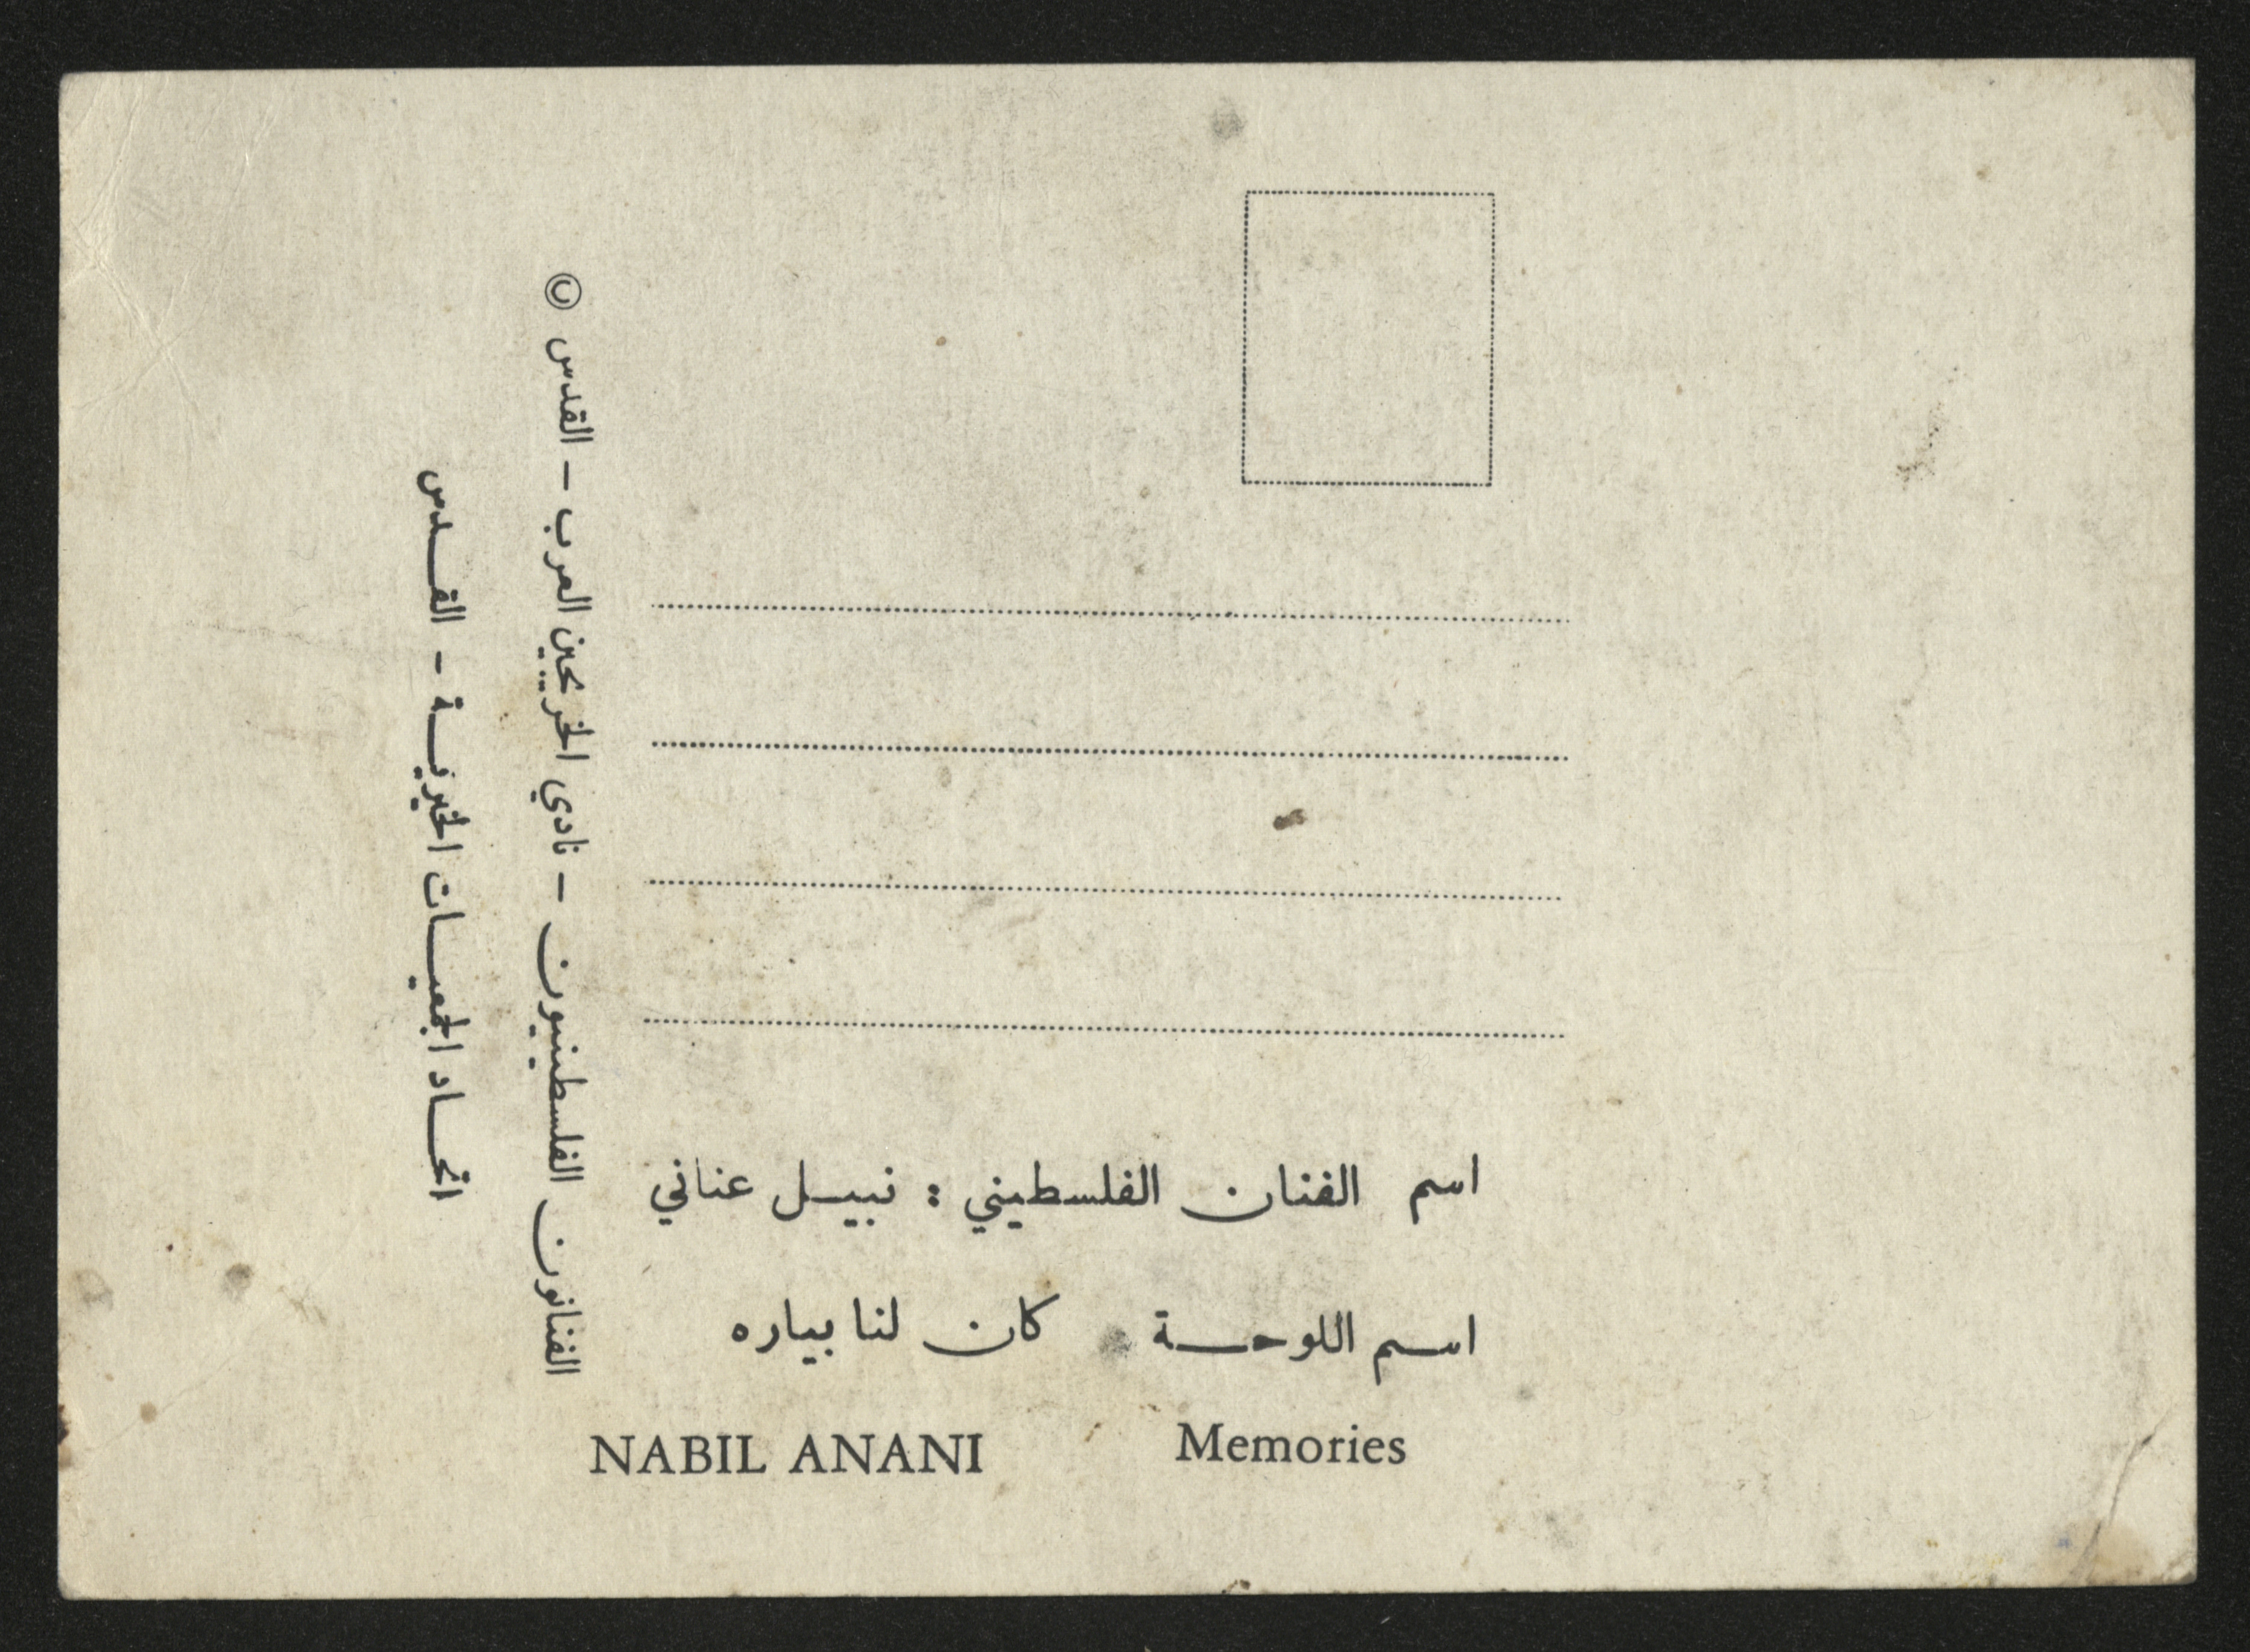 اسم الفنان الفلسطيني : نبيل عناني
اسم اللوحة كان لنا بياره
NABIL ANANI Memories
الفنانون الفلسطينيون - نادي الخريجين العرب - القدس ©
اتحاد الجمعيات الخيرية - القدس